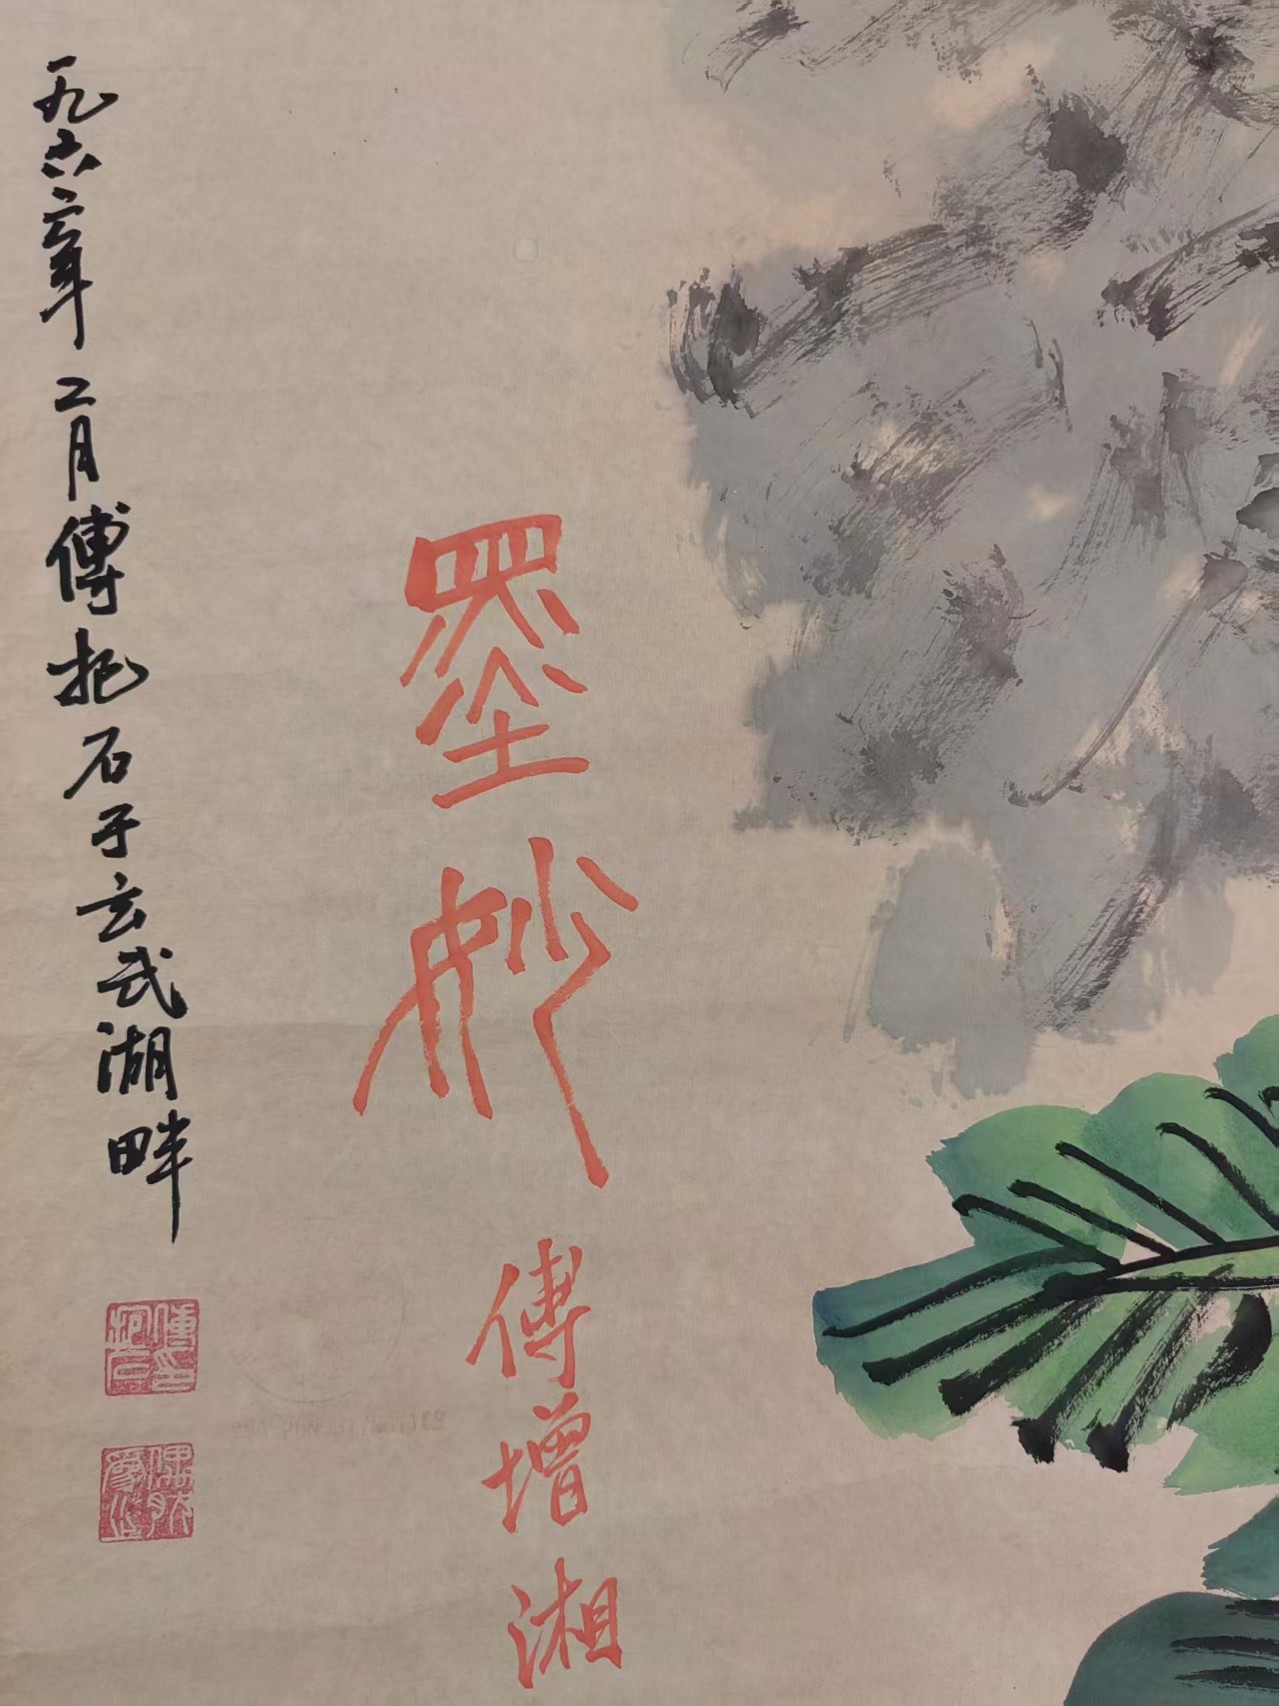 墨妙 傅增湘
一九六二年二月傅抱石于玄武湖畔
傅印
抱石